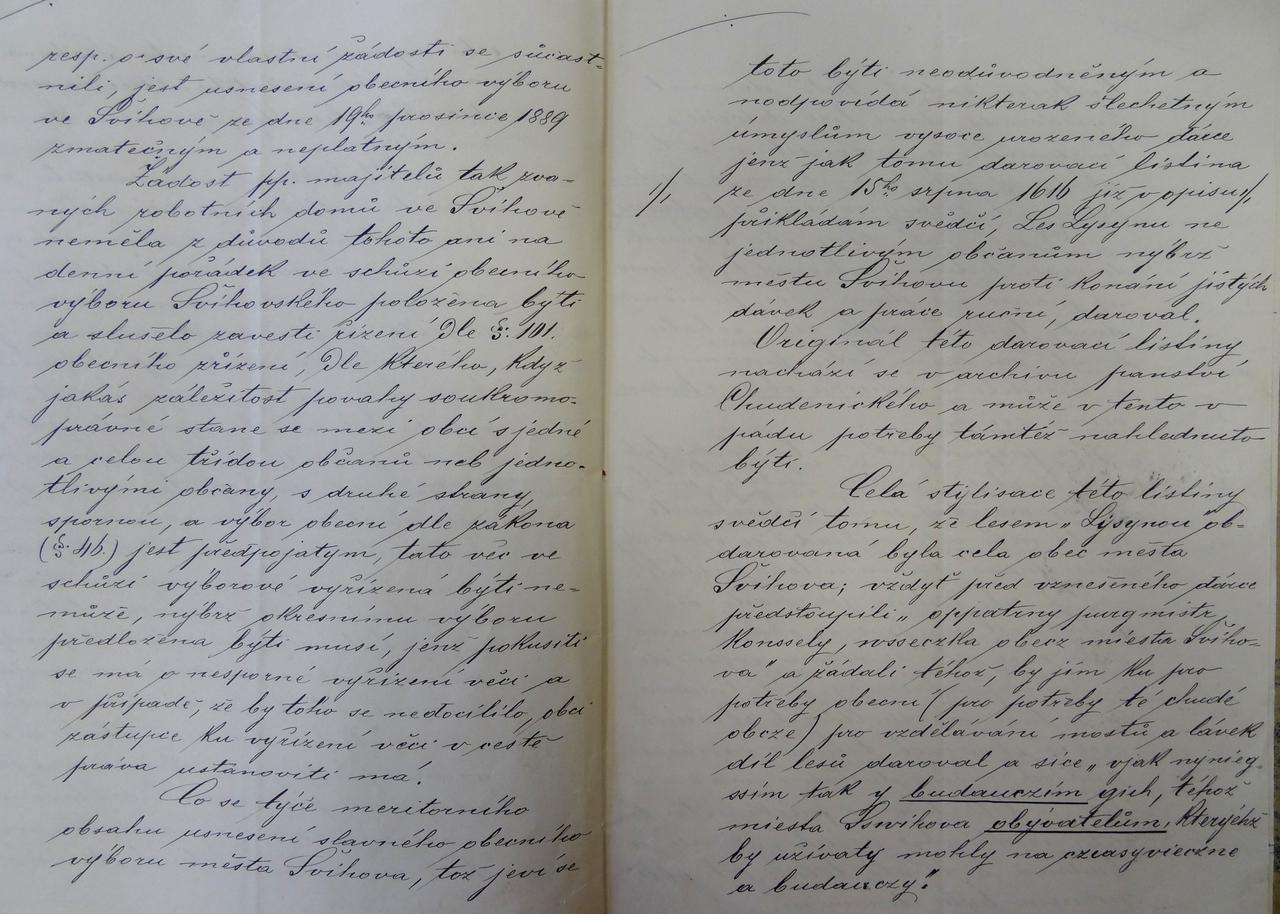 resp. o své vlastní žádosti se súčast-
nili, jest usnesení obecního výboru
ve Švihově ze dne 19ho prosince 1889
zmatečným a neplatným.
Žádost pp. majitelů tak zva-
ných robotních domů ve Švihově
neměla z důvodů tohoto ani na
denní pořádek ve schůzi obecního
výboru Švihovského položena býti
a slušelo zavesti řízení dle §. 101.
obecního zřízení, dle kterého, když
jakás záležitost povahy soukromo-
právné stane se mezi obcí s jedné
a celou třídou občanů neb jedno-
tlivými občany, s druhé strany,
spornou, a výbor obecní dle zákona
(§. 46.) jest předpojatým, tato věc ve
schůzi výborové vyřízena býti ne-
může, nýbrž okresnímu výboru
předložena býti musí, jenž pokusiti
se má o nesporné vyřízení věci a
v případě, že by toho se nedocílilo, obci
zástupce ku vyřízení věci v cestě
práva ustanoviti má.
Co se týče meritorního
obsahu usnesení slavného obecního
výboru města Švihova, tož jeví se
toto býti neodůvodněným a
nodpovídá nikterak šlechetným
úmyslům vysoce urozeného dárce
jenž jak tomu darovací listina
1/, ze dne 15ho srpna 1616 již v opisu 1/,
přikládám svědčí, Les Lysynu ne
jednotlivým občanům nýbrž
městu Švihovu proti konání jistých
dávek a práce ruční, daroval.
Originál této darovací listiny
nachází se v archivu panství
Chudenického a může v tento v
pádu potřeby támtéž nahlednuto
býti.
Celá stylisace této listiny
svědčí tomu, že lesem „Lysynou" ob-
darovaná byla cela obec města
Švihova; vždyť před vznešeného dárce
předstoupili „oppatrny purgmistr
konssely, wsseczka obecz miesta Šviho-
va" a žádali téhož, by jim ku pro
potřeby obecní (pro potřeby té chudé
obcze) pro vzdělávání mostů a lávek
díl lesů daroval a sice „vjak nynieg-
ssim tak y budauczim gich, téhož
miesta Sswihova obývatelům, kterýchž
by užívaty mohly na czeasyvieczne
a budauczy."